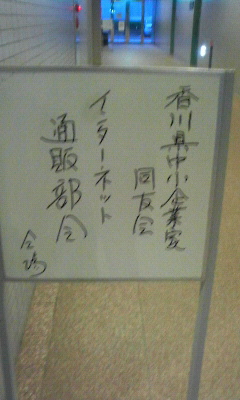 香川県中小企業家
同友会
インターネット
通販部会
会場